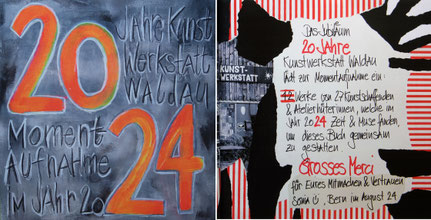 20 Jahre Kunst
Werkstatt
Waldau
Moment
Aufnahme
im Jahr 20
24
KUNST-
WERKSTATT
Das Jubiläum
20 Jahre
Kunstwerkstatt Waldau
lädt zur Momentaufnahme ein.
Werke von 27 Kunstschaffenden
& Atelierhüterinnen, welche im
Jahr 2024 Zeit & Muse finden,
um dieses Buch gemeinsam
zu gestalten
Grosses Merci
für Eures Mitmachen & Vertrauen
Bern im August 24